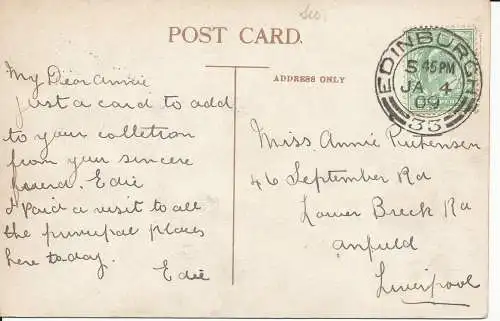 Sco.
POST CARD.
ADDRESS ONLY
EDINBURGH
5 45 PM
JA 4
09
33
My Dear Annie
Just a card to add
to your colletion
from your sincere
friend. Edie
I Paid a visit to all
the principal places
here today.
Edie
Miss Annie
46 September Rd
Lower Breck Rd
Anfield
Liverpool